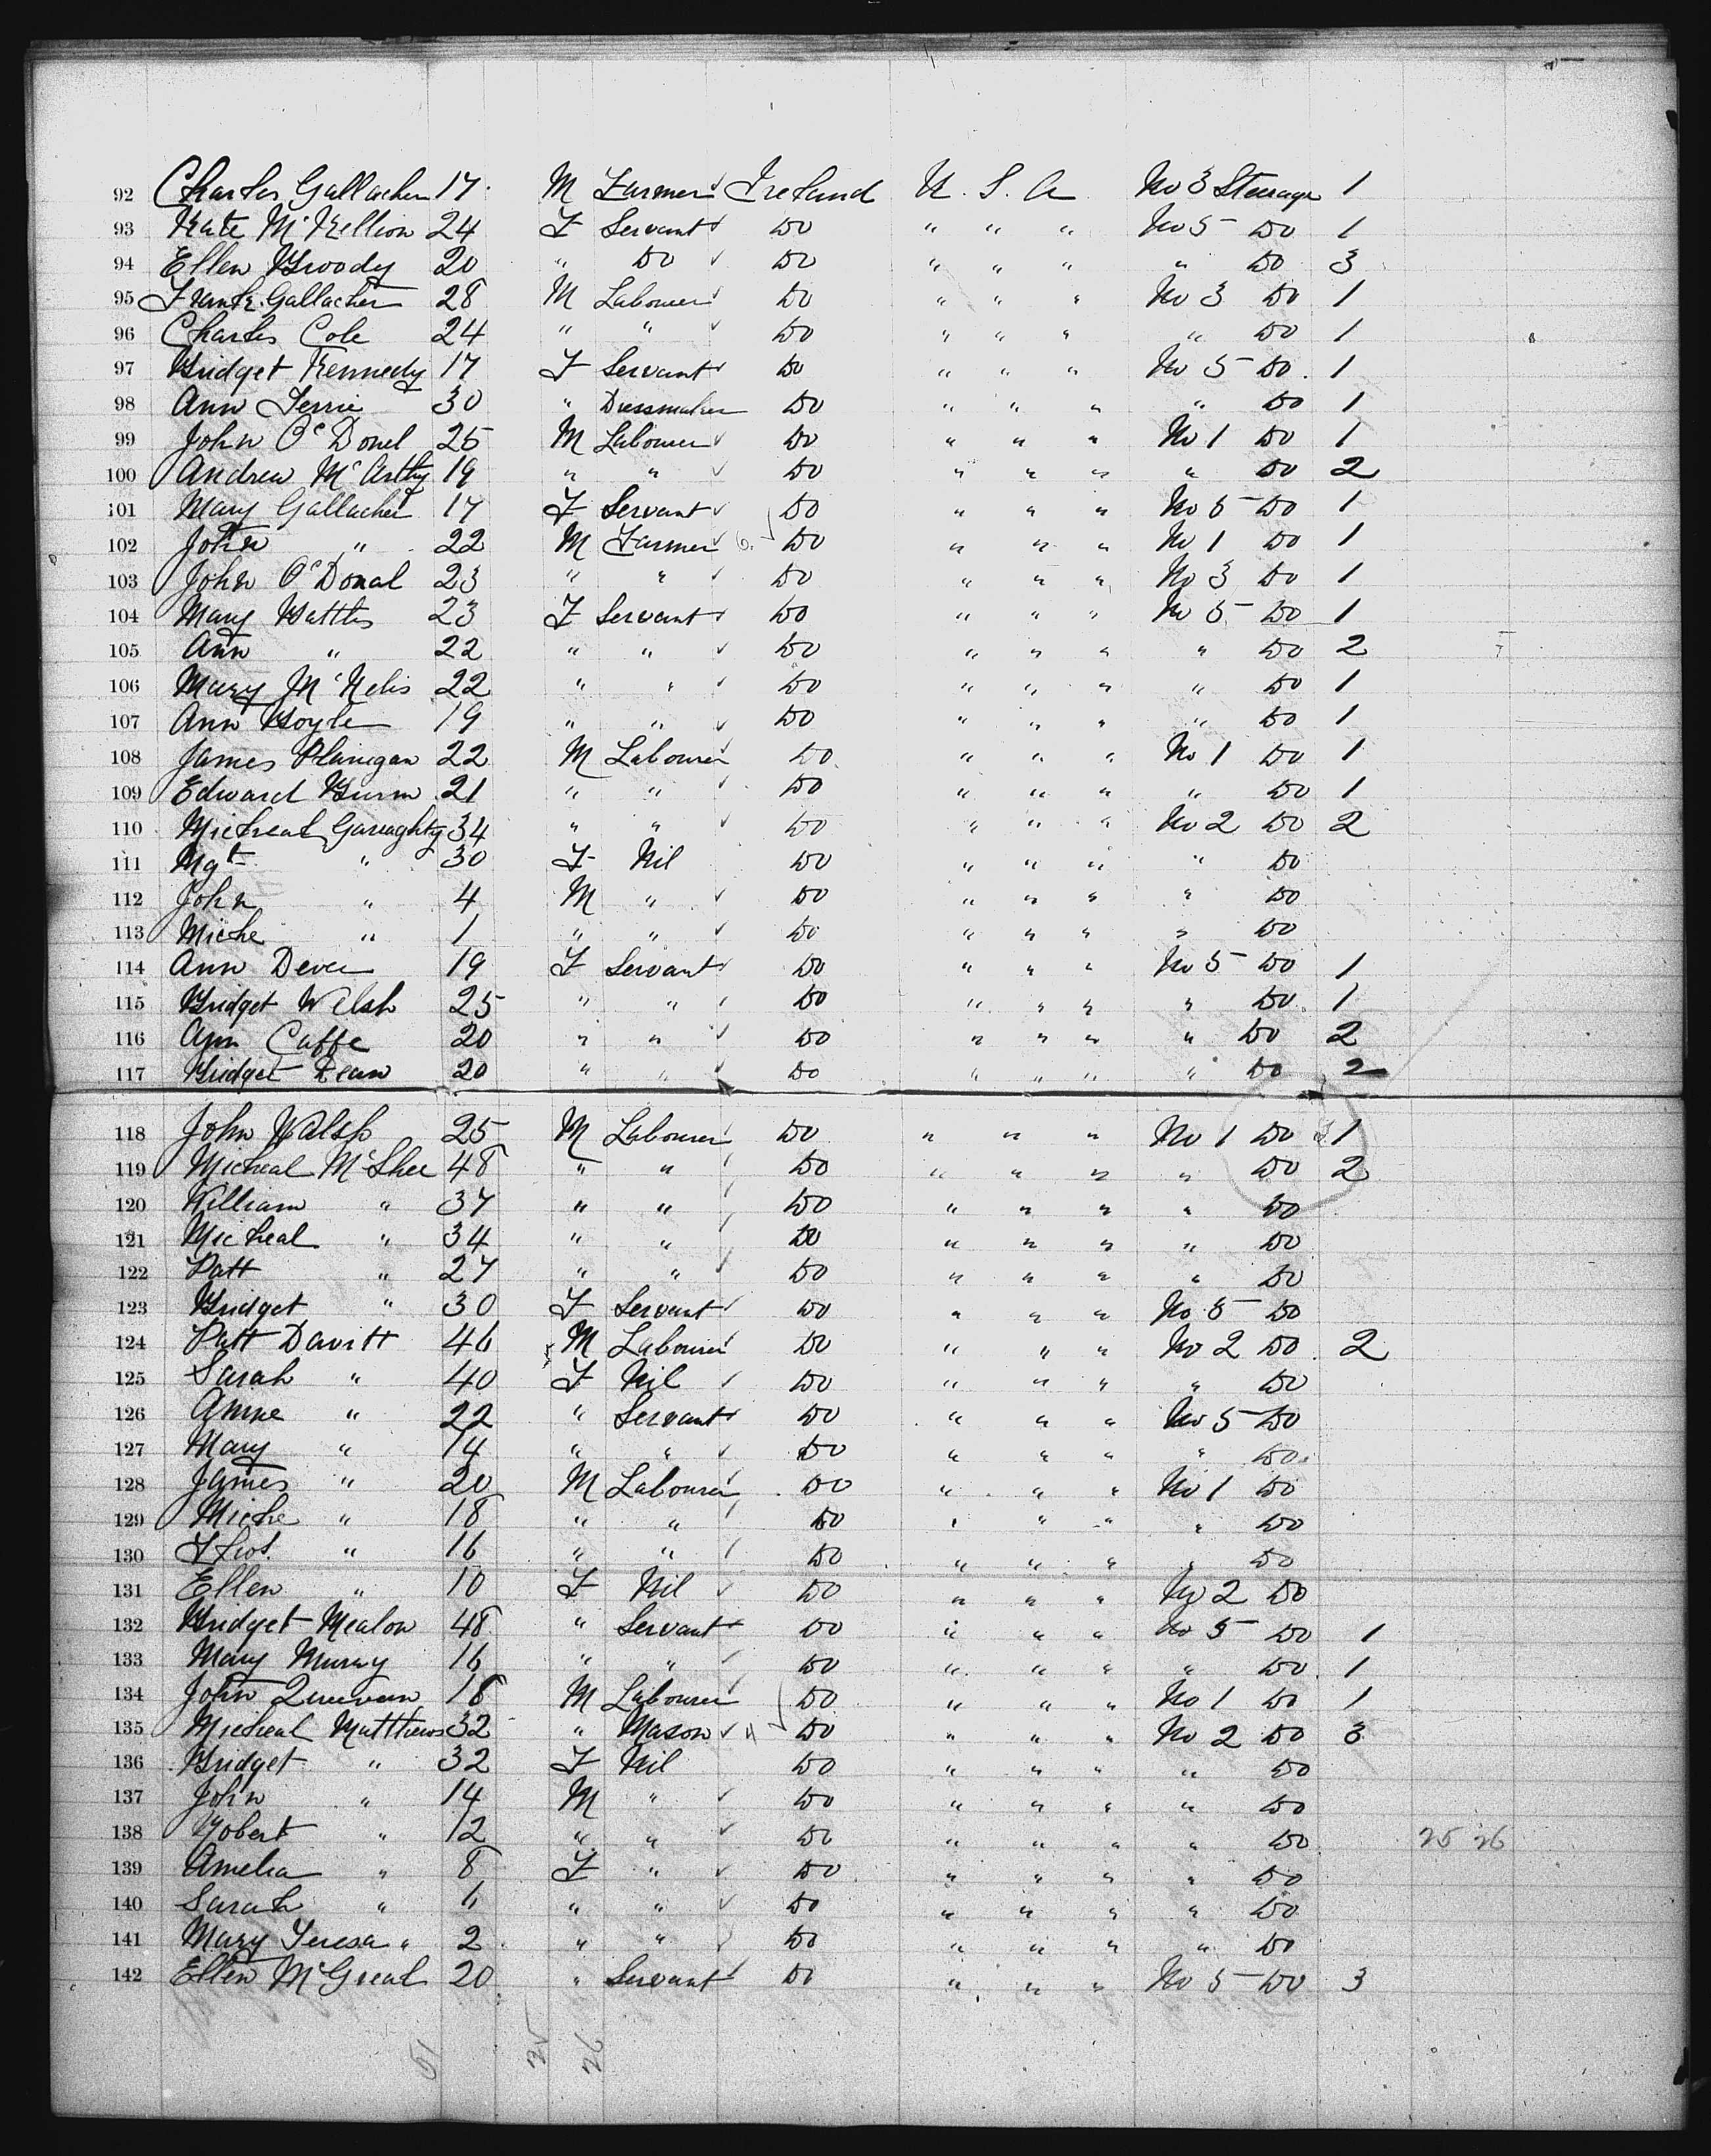 92 Charles Gallacher 17 M Farmer Ireland U. S. A No 3 Steerage 1
93 Kate McKellion 24 F Servant Do " " " No 5 Do 1
94 Ellen Broody 20 " Do Do " " " " Do 3
95 Frank Gallacher 28 M Labourer Do " " " No 3 Do 1
96 Charles Cole 24 " " Do " " " " Do 1
97 Bridget Kennedy 17 F Servant Do " " " No 5 Do 1
98 Ann 30 " Dressmaker Do " " " " Do 1
99 John O'Donel 25 M Labourer Do " " " No 1 Do 1
100 Andrew McArthy 19 " " Do " " " " Do 2
101 Mary Gallacher 17 F Servant Do " " " No 5 Do 1
102 John " 22 M Farmer 6. Do " " " No 1 Do 1
103 John O'Donal 23 " " Do " " " No 3 Do 1
104 Mary Battles 23 F Servant Do " " " No 5 Do 1
105 Ann " 22 " " Do " " " " Do 2
106 Mary McNelis 22 " " Do " " " " Do 1
107 Ann Boyle 19 " " Do " " " " Do 1
108 James Flanigan 22 M Labourer Do " " " No 1 Do 1
109 Edward 21 " " Do " " " " Do 1
110 Micheal Garaghty 34 " " Do " " " No 2 Do 2
111 Mgt " 30 F Nil Do " " " " Do
112 John " 4 M " Do " " " " Do
113 Miche " 1 " " Do " " " " Do
114 Ann Dever 19 F Servant Do " " " No 5 Do 1
115 Bridget Welsh 25 " " Do " " " " Do 1
116 Ann Caffe 20 " " Do " " " " Do 2
117 Bridget 20 " " Do " " " " Do 2
118 John Walsh 25 M Labourer Do " " " No 1 Do 1
119 Micheal McShee 48 " " Do " " " " Do 2
120 William " 37 " " Do " " " " Do
121 Micheal " 34 " " Do " " " " Do
122 Patt " 27 " " Do " " " " Do
123 Bridget " 30 F Servant Do " " " No 5 Do
124 Patt Davitt 46 M Labourer Do " " " No 2 Do 2
125 Sarah " 40 F Nil Do " " " " Do
126 Anne " 22 " Servant Do " " " No 5 Do
127 Mary " 14 " " Do " " " " Do
128 James " 20 M Labourer Do " " " No 1 Do
129 Miche " 18 " " Do " " " " Do
130 Thos. " 16 " " Do " " " " Do
131 Ellen " 10 F Nil Do " " " No 2 Do
132 Bridget Mealon 48 " Servant Do " " " No 5 Do 1
133 Mary Murray 16 " " Do " " " " Do 1
134 John 18 M Labourer Do " " " No 1 Do 1
135 Micheal Matthews 32 " Mason 4 Do " " " No 2 Do 3
136 Bridget " 32 F Nil Do " " " " Do
137 John " 14 M " Do " " " " Do
138 Robert " 12 " " Do " " " " Do 25 26
139 Amelia " 8 F " Do " " " " Do
140 Sarah " 6 " " Do " " " " Do
141 Mary Teresa " 2 " " Do " " " " Do
142 Ellen McGreal 20 " Servant Do " " " No 5 Do 3
51 25 26